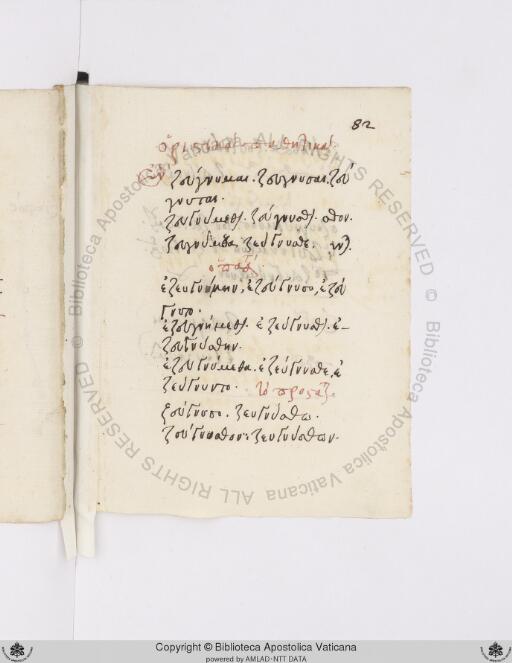 82
ὁριστικὰ παθητικά
Ἑν ζεύγνυμαι. ζεύγνυσαι. ζεύ
γνυται.
ζευγνύμεθον. ζεύγνυσθον. σθον.
ζευγνύμεθα. ζεύγνυσθε. νται.
ὁ παρατ
ἐζευγνύμην, ἐζεύγνυσο, ἐζεύ
γνυτο.
ἐζευγνύμεθον. ἐζεύγνυσθον. ἐ-
ζευγνύσθην.
ἐζευγνύμεθα. ἐζεύγνυσθε. ἐ
ζεύγνυντο. τὸ προστακ
ζεύγνυσο. ζευγνύσθω.
ζεύγνυσθον. ζευγνύσθων.
Copyright © Biblioteca Apostolica Vaticana
powered by AMLAD-NTT DATA